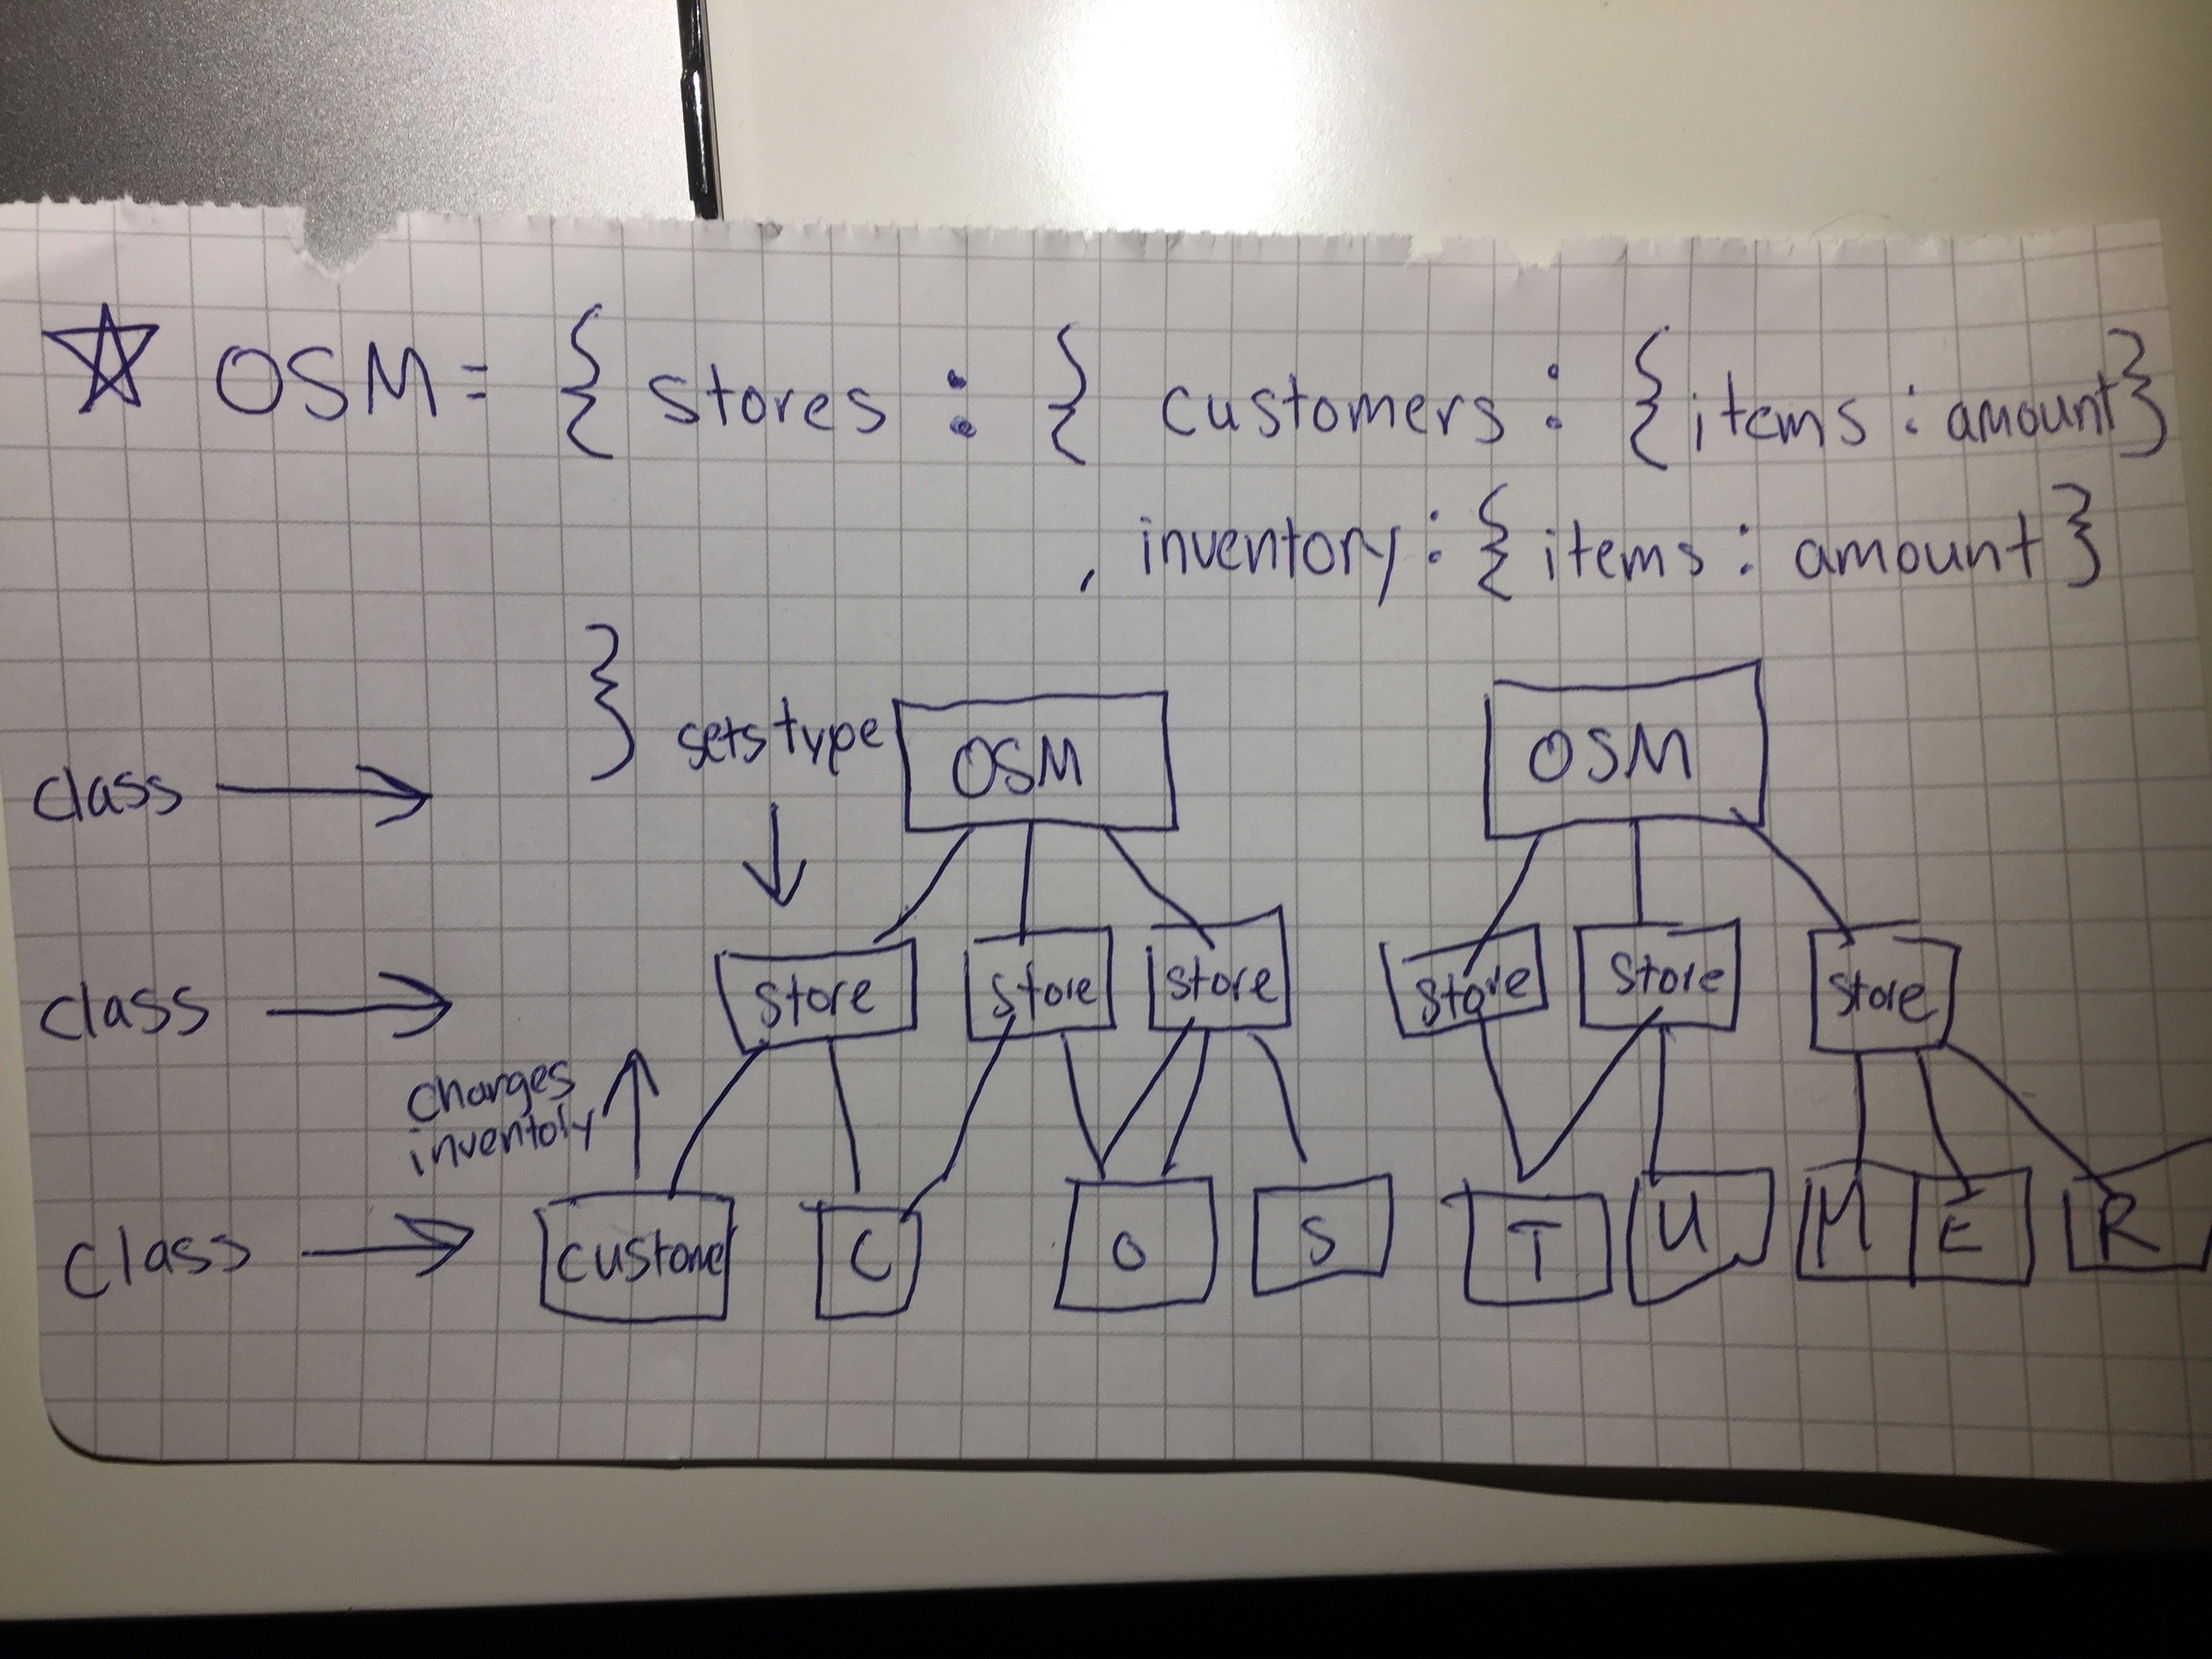 ☆ OSM = { stores : { customers : {items : amount}
, inventory : { items : amount }
}
sets type
OSM
OSM
class →
store
store
store
store
store
store
class →
changes
inventory
class →
custome
C
O
S
T
U
M
E
R